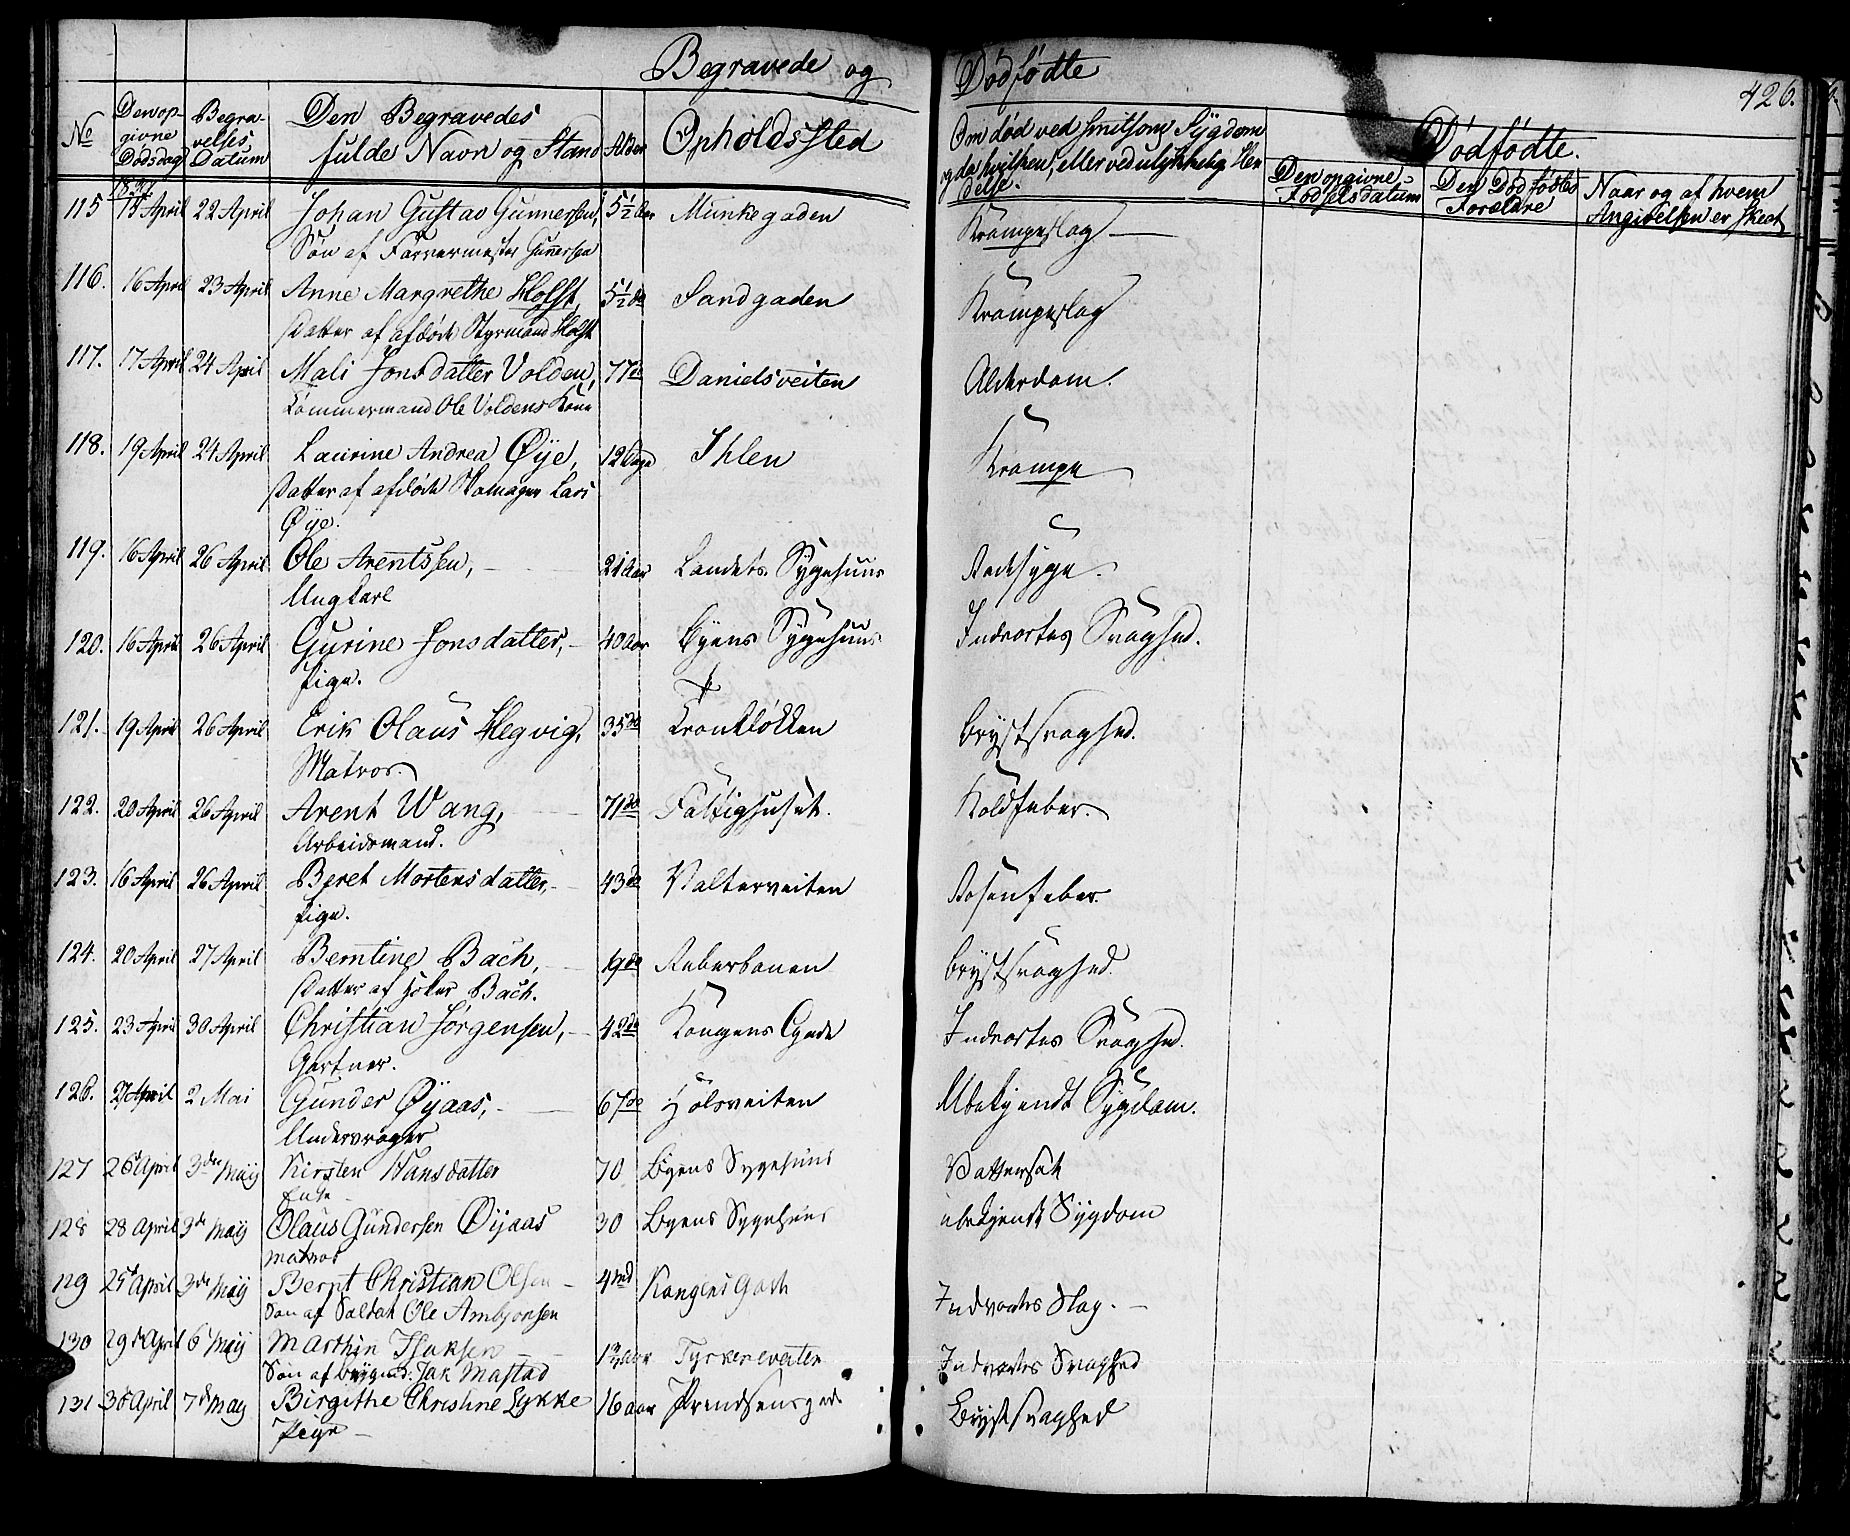 Begravede og Dødfødte
426.
No
Den opgivne Dødsdag
Begravelses Datum
Den Begravedes fulde Navn og Stand
Alder
Opholdssted
Om død ved smitsom Sygdom og da hvilken, eller ved ulykkelig Hendelse.
Dødfødte.
Den opgivne Fødselsdatum
Den Dødfødtes Forældre
Naar og af hvem Angivelsen er skeet
115 15 April 22 April Johan Gustav Gunnersen, 5½ Aar Munkegaden Krampeslag
Søn af Farvermester Gunnersen
116. 16 April 23 April Anne Margrethe Holst, 5½ do Sandgaden Krampeslag
Datter af afdøde Styrmand Holst
117. 17 April 24 April Mali Jonsdatter Volden, 77 do Danielsveiten Alderdom.
Tømmermand Ole Voldens Kone
118. 19 April 24 April Laurine Andrea Øye, 12 Dage Ihlen Krampe
Datter af afdøde Skomager Lars
Øye.
119. 16 April 26 April Ole Arentssen, 21 Aar Landets Sygehuus Radesyge.
Ungkarl
120. 16 April 26 April Gurine Jonsdatter, 40 Aar Byens Sygehuus Indvortes Svaghed.
Pige.
121. 19 April 26 April Erik Olaus Hegvig, 35 do Kronkløkken Brystsvaghed.
Matros.
122. 20 April 26 April Arent Wang, 71 do Fattighuset. Koldfeber.
Arbeidsmand.
123. 16 April 26 April Beret Mortensdatter, 43 do Valterveiten Rosenfeber.
Pige.
124. 20 April 27 April Berntine Bach, 9 do Reberbanen Brystsvaghed.
Datter af Høker Bach.
125. 23 April 30 April Christian Jørgensen, 42 do Kongens Gade Indvortes Svaghed.
Gartner.
126. 27 April 2 Mai Gunder Øyaas, 67 do Holsveiten Ubekjendt Sygdom.
Undervrager
127 26 April 3die Maij Kirsten Hansdatter 70 Byens Sygehuus Vattersot
Enke
128 28 April 3de Maij Olaus Gundersen Øijaas 30 Byens Sygehuus ubekjendt Sygdom
Matros
129 25d April 3de Maij Bernt Christian Olsen 4 Md Kongens Gade Indvortes Slag.
Søn af Soldat Ole Ambjonsen
130 29d April 6 Maij Marthin Isaksen Aar Tyskerveiten Indvortes Svaghed
Søn af Isak Mastad
131 30 April 7d May Birgithe Christine Lykke 16 aar Prindsensgade Brystsvaghed
Pige